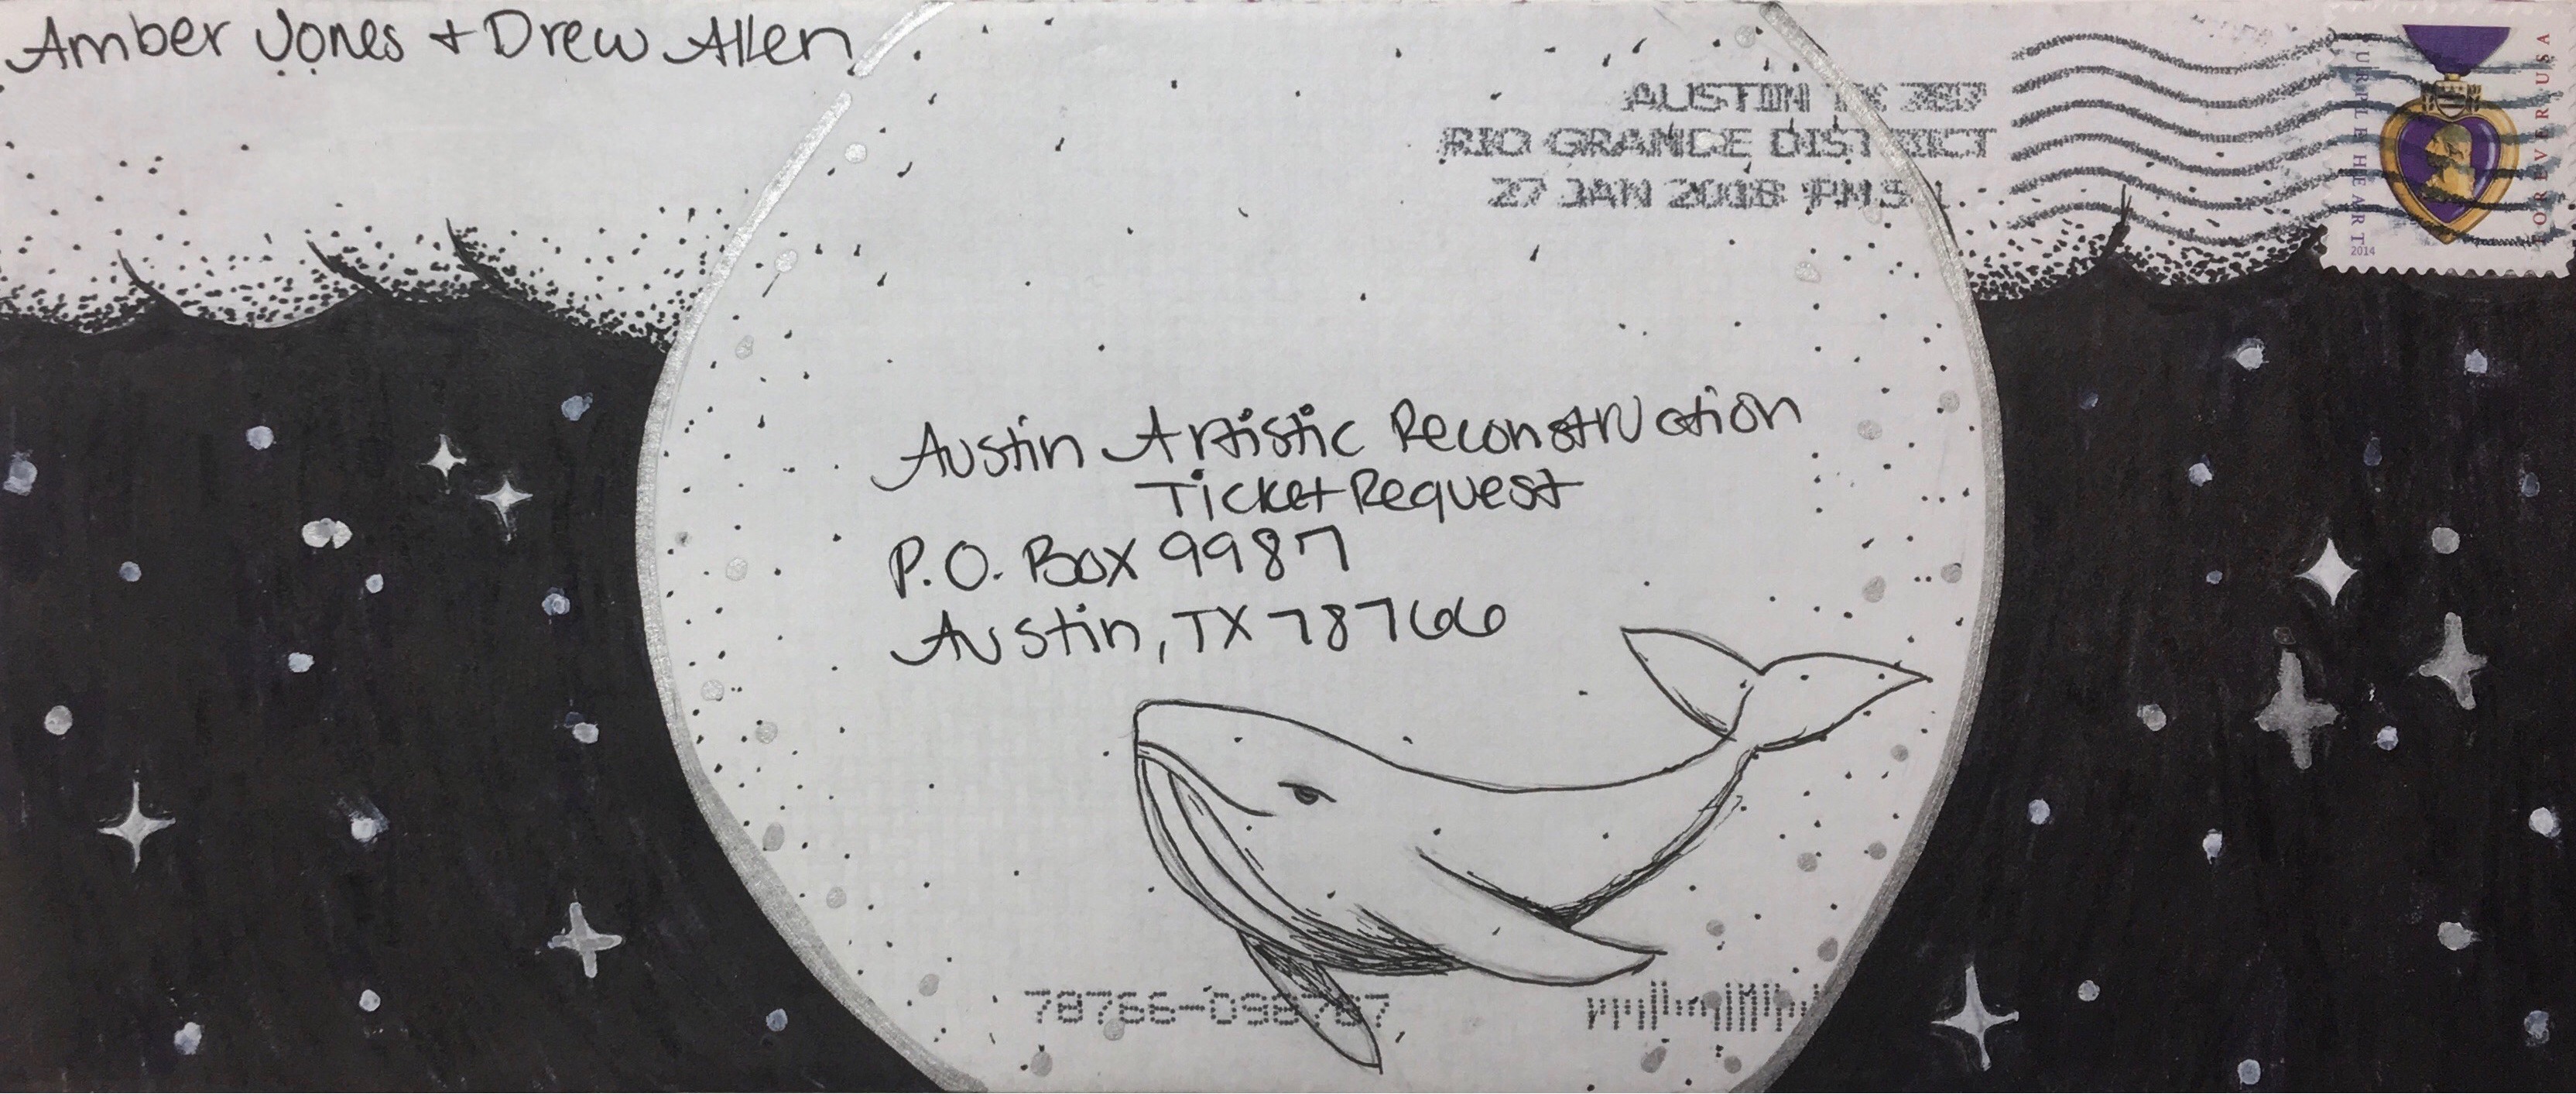 Amber Jones + Drew Allen
AUSTIN TX 787
RIO GRANDE DISTRICT
27 JAN 2018 PM 5 L
PURPLE HEART
2014
FOREVER USA
Austin Artistic Reconstruction
Ticket Request
P.O. Box 9987
Austin, TX 78766
78766-098787